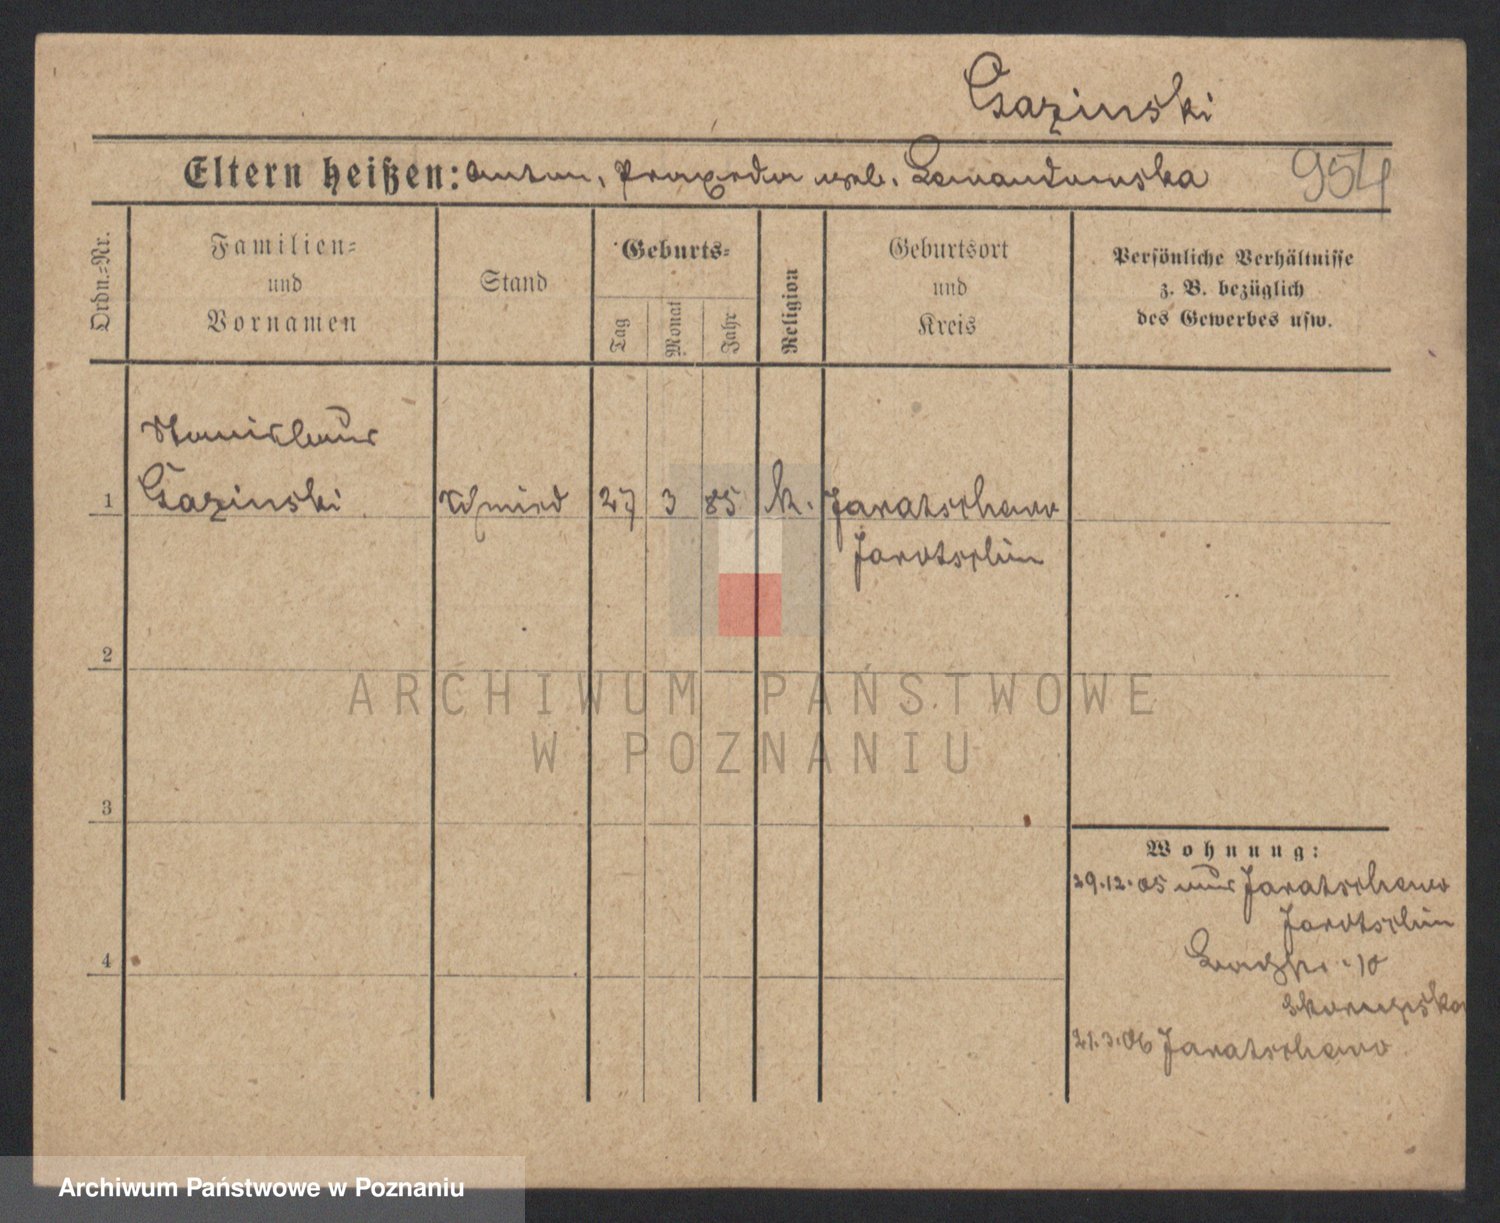 Gazinski
Eltern heißen: Anton, Praxeda geb. Lewandowska
954
Ordn.=Nr.
Familien=
und
Vornamen
Stand
Geburts=
Tag
Monat
Jahr
Religion
Geburtsort
und
Kreis
Persönliche Verhältnisse
z. B. bezüglich
des Gewerbes usw.
Stanislaus
1 Gazinski Schmied 27 3 85 k. Jaratschewo
Jarotschin
2
ARCHIWUM PAŃSTWOWE
W POZNANIU
3
Wohnung:
29.12.05 aus Jaratschewo
Jarotschin
10
21.3.06 Jaratschewo
4
Archiwum Państwowe w Poznaniu